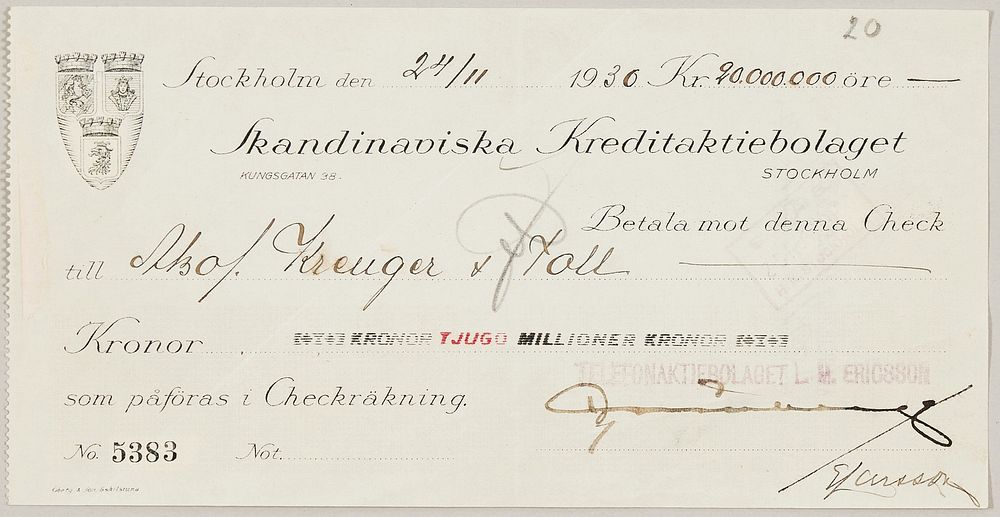 20
Stockholm den 24/11 1930 Kr. 20.000.000 öre —
Skandinaviska Kreditaktiebolaget
KUNGSGATAN 38. STOCKHOLM
Betala mot denna Check
till Kreuger & Toll
Kronor KRONOR TJUGO MILLIONER KRONOR
TELEFONAKTIEBOLAGET L. M. ERICSSON
som påföras i Checkräkning.
No. 5383 Not.
E Larsson